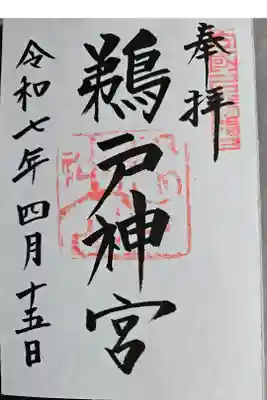 奉拝
鵜戸神宮
令和七年四月十五日